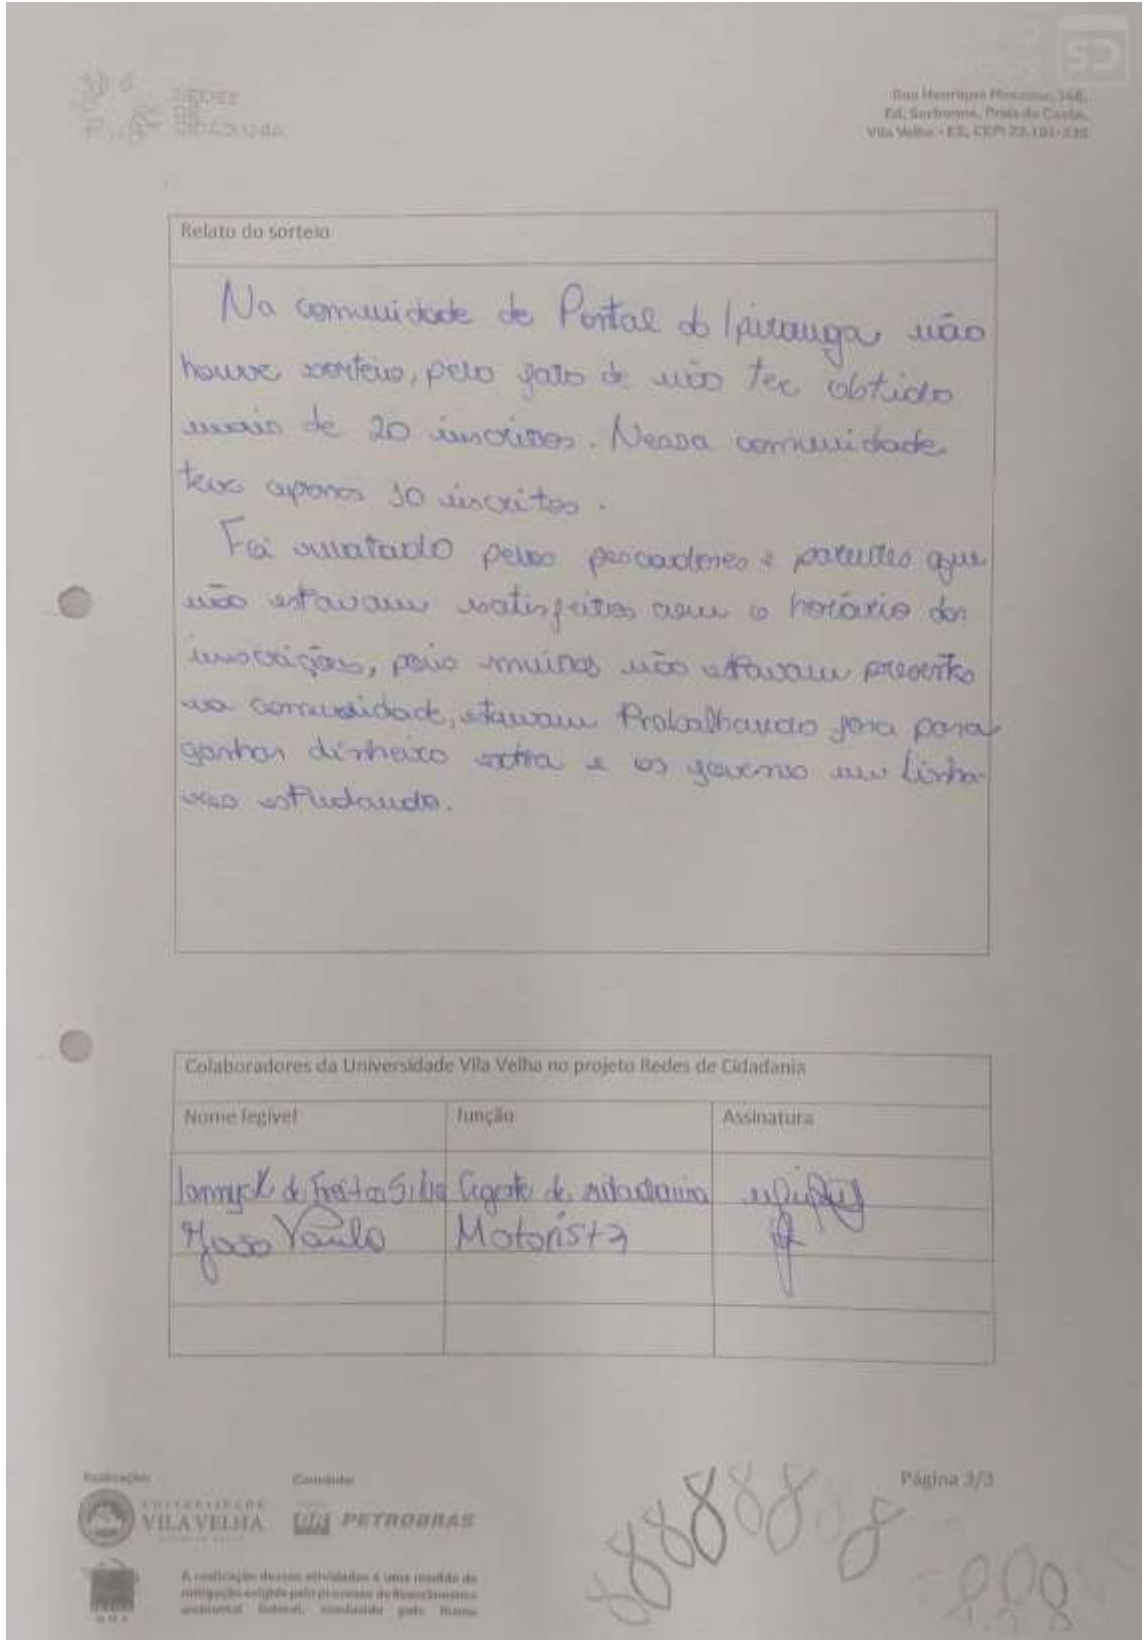 REDES
DE
CIDADANIA
CS
Ed. Sorbonne, Praia da Costa,
Vila Velha - ES, CEP:
Relato do sorteio
Na comunidade de Portal do Ipiranga não
houve sorteio, pelo fato de não ter obtido
mais de 20 inscritos. Nessa comunidade
teve apenas 10 inscritos.
Foi pelos pescadores e parentes que
não estavam satisfeitos com o horário das
inscrições, pois muitos não estavam presentes
na comunidade, estavam trabalhando fora para
ganhar dinheiro extra e os jovens em Linha-
res estudando.
Colaboradores da Universidade Vila Velha no projeto Redes de Cidadania
Nome legível função Assinatura
de Freitas Silva Agente de cidadania
João Paulo Motorista
Realização:
Página 3/3
UNIVERSIDADE
VILA VELHA
BR PETROBRAS
A realização dessas atividades é uma medida de
mitigação exigida pelo processo de licenciamento
ambiental federal, conduzido pelo Ibama
8888888